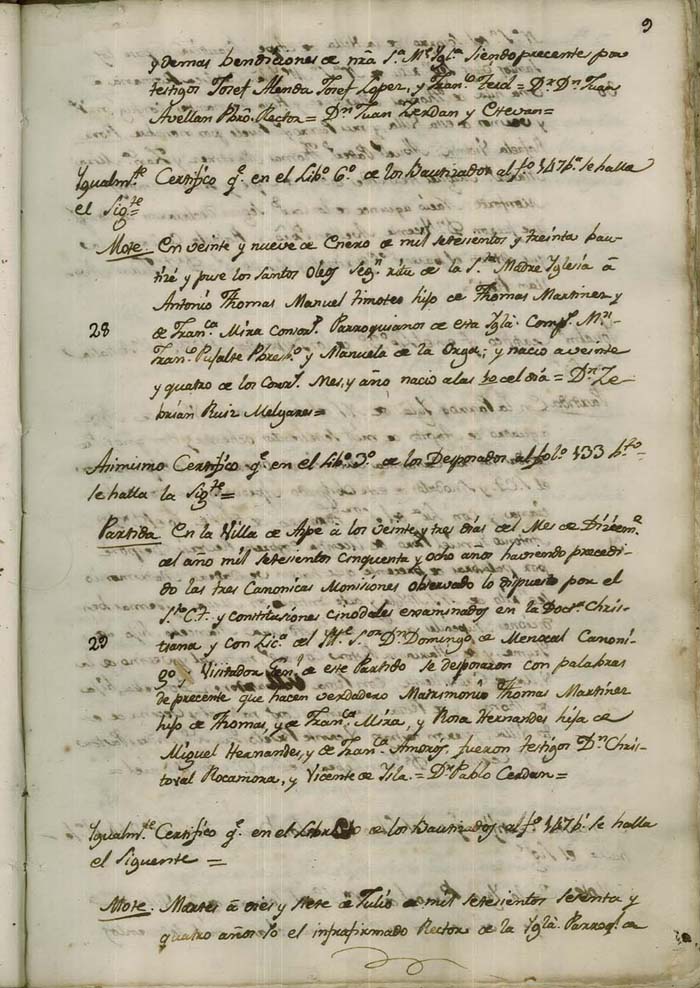 9
y demas bendiciones de nrã S.ta M.e Ygl.a siendo precente por
testigos Josef Alenda Josef Lopez, y Fran.co = D.r D.n Juan
Avellan Pbrô. Rector = D.n Juan Zerdan y Estevan =
Igualm.te Certifico q.e en el Lib.o 6.o de los Bautizados al f.o 147 b.ta se halla
el Sig.te
Mote. En veinte y nueve de Enero de mil setesientos y treinta bau-
tizé y puse los Santos Oleos Seg.n ritu de la S.ta Madre Yglesia â
Antonio Thomas Manuel timoteo hijo de Thomas Martinez y
28 de Fran.ca Mira consor.s Parroquianos de esta Yglã. Comp.s M.n
Fran.co Pusalte Pbres.o y Manuela de la Orga; y nacio a veinte
y quatro de los Corr.s Mes, y año nacio a las del dia = D.n Ze-
brian Ruiz Melgares =
Asimismo Certifico q.e en el Lib.o 3.o de los Desposados al fol.o 133 b.to
se halla la Sig.te =
Partida En la Villa de Aspe â los veinte y tres dias del Mes de Diziem.e
del año mil setesientos cinquenta y ocho años haviendo precedi-
do las tres Canonicas Monisiones observado lo dispuesto por el
S.to C.T. y constituiones cinodales examinados en la Doct.a Chris-
tiana y con Lic.a del Ill.e S.or D.n Domingo de Menocal Canoni-
29 go y Visitador Gen.l de este Partido se desposaron con palabras
de precente que hacen verdadero Matrimonio Thomas Martinez
hijo de Thomas, y de Fran.ca Mira, y Rosa Hernandes hija de
Miguel Hernandes, y de Fran.ca Amorôs. fueron testigos D.n Chris-
toval Rocamora, y Vicente de Ysla. = D.r Pablo Cerdan =
Igualm.te Certifico q.e en el Libro de los Bautizados al f.o 147 b.ta se halla
el Siguente =
Mote. Martes â dies y siete de Julio de mil setesientos setenta y
quatro años Yo el infrafirmado Rector de la Yglã. Parroq.l de